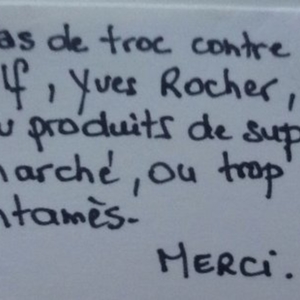 as de troc contre
lf, Yves Rocher,
u produits de sup
marché, ou trop
ntamès-
MERCi.